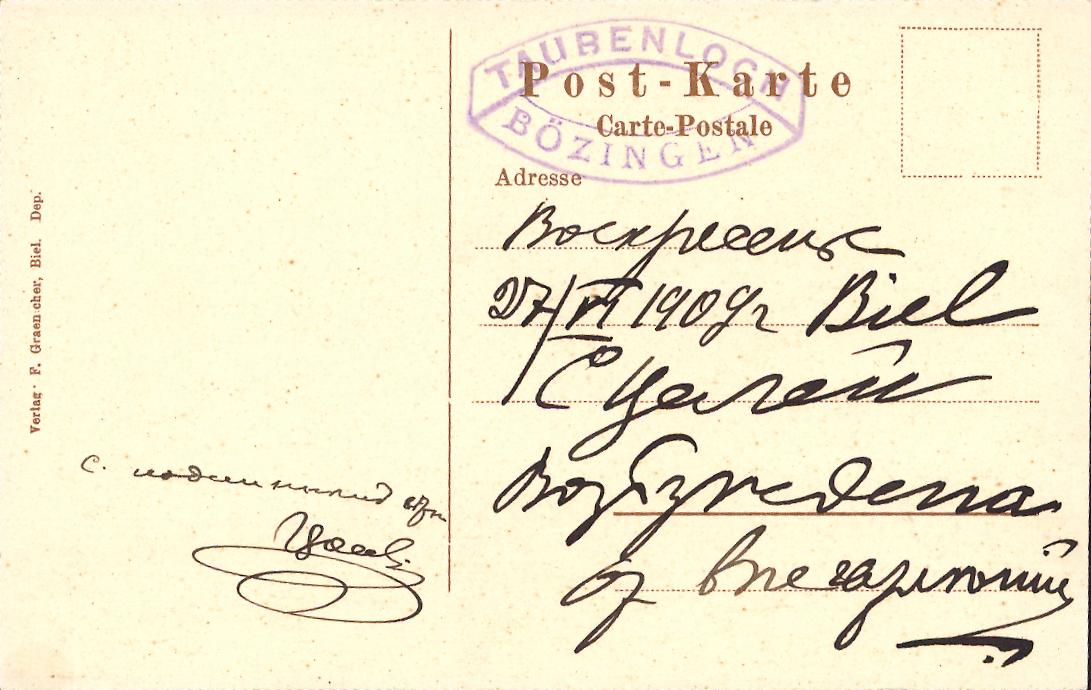 TAUBENLOCH
BÖZINGEN
Post-Karte
Carte-Postale
Adresse
Воскресенье
27/VI 1909 г Biel
С
Возбуждена
от впечатлений
Verlag F. Graenicher, Biel. Dep.
с подлинным